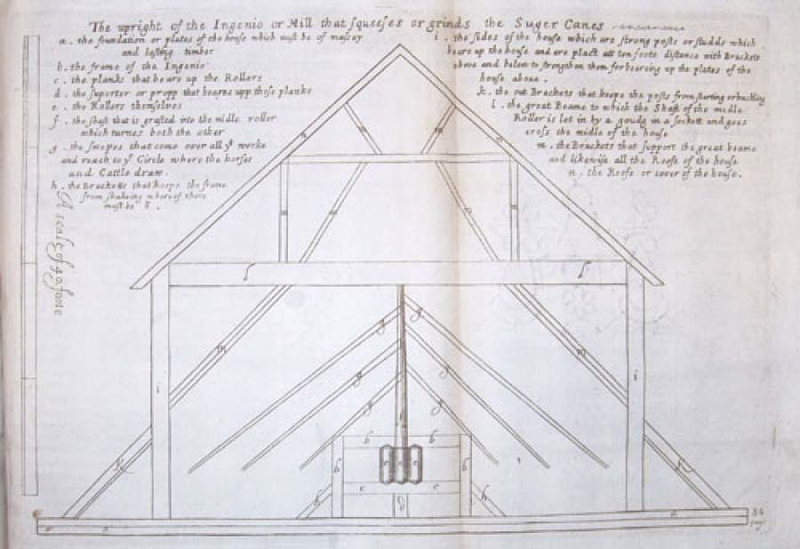 The upright of the Ingenio or Mill that squeeses or grinds the Suger Canes
a. the foundation or plates of the house which must be of massey
and lasting timber
b. the frame of the Ingenio
c. the planks that bears up the Rollers
d. the suporter or propp that beares upp those planks
e. the Rollers themselves
f. the shaft that is grafted into the midle roller
which turnes both the other
g. the sweepes that come over all ye worke
and reach to ye Circle where the horses
and Cattle draw.
h. the Brackets that keepe the frame
from shakeing whereof there
must be 8.
i. the sides of the house which are strong posts or studds which
beare up the house and are plact att ten foote distance with Brackets
above and below to strengthen them for bearing up the plates of the
house above.
k. the out Brackets that keepe the posts from starting or buckling
l. the great Beame to which the Shaft of the midle
Roller is let in by a goudg in a sockett and goes
cross the midle of the house
m. the Brackets that support the great beame
and likewise all the Roofe of the house
n. the Roofe or cover of the house.
A scale of 40 foote
n
n
m
m
n
n
f
f
m
m
g
g
g
g
g
g
i
i
b
b
b
b
k
k
c
c
d
h
h
a
a
84